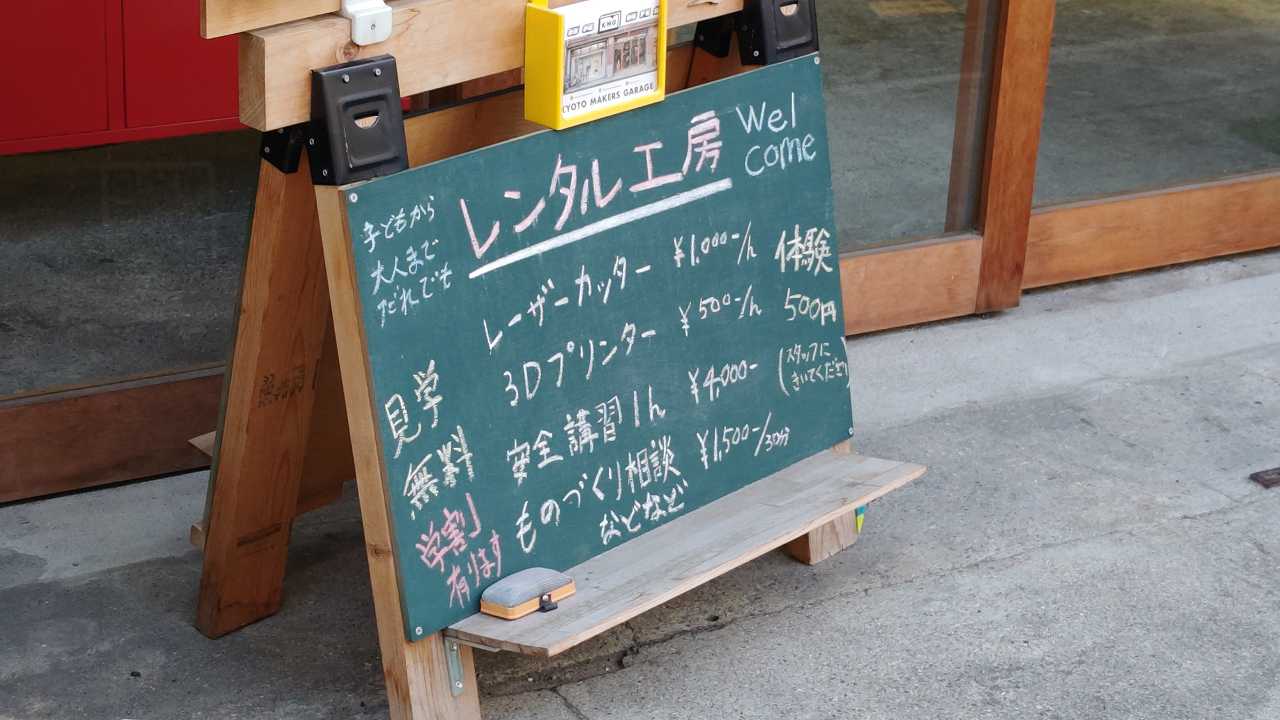 KMG
KYOTO MAKERS GARAGE
レンタル工房
Wel
come
子どもから
大人まで
だれでも
レーザーカッター ¥1,000-/h
3Dプリンター ¥500-/h
安全講習1h ¥4,000-
ものづくり相談 ¥1,500-/30分
などなど
体験
500円
(スタッフに
きいてください)
見学
無料
学割
有ります